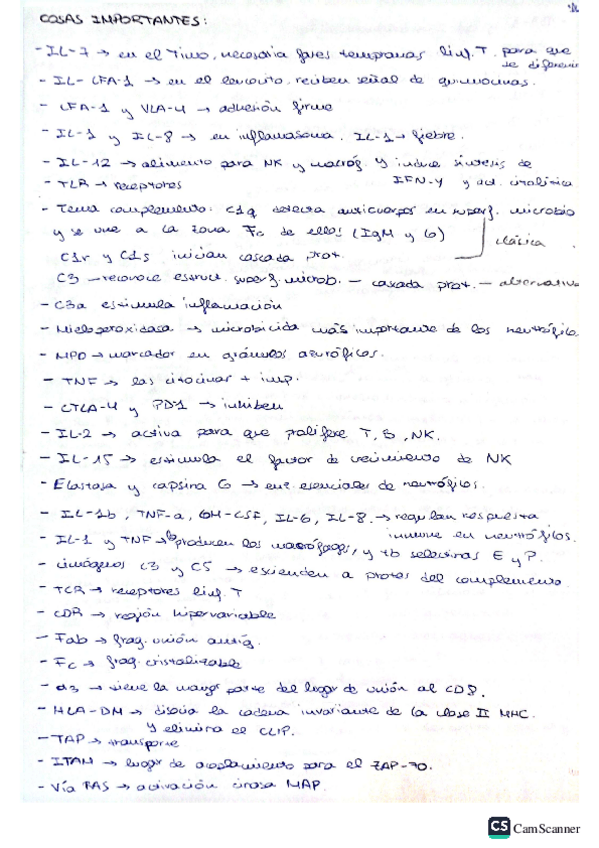 COSAS IMPORTANTES:
- IL-7 → en el Timo, necesaria fases tempranas linf. T. para que
se diferencie
- IL- LFA-1 → en el leucocito, reciben señal de quimiocinas.
- LFA-1 y VLA-4 → adhesión firme
- IL-1 y IL-8 → en inflamasoma. IL-1 → fiebre.
- IL-12 → alimento para NK y macróf. Y induce síntesis de
IFN-γ y act. citolítica
- TLR → receptores
- Tema complemento: C1q detecta anticuerpos en superf. microbio
y se une a la zona Fc de ellos (IgM y G)
clásica
C1r y C1s inician cascada prot.
C3 - reconoce estruct. superf. microb. - cascada prot. - alternativa
- C3a estimula inflamación
- Mieloperoxidasa → microbicida más importante de los neutrófilos
- MPO → marcador en gránulos azurófilos.
- TNF → las citocinas + imp.
- CTLA-4 y PD-1 → inhiben
- IL-2 → activa para que prolifere T, B, NK.
- IL-15 → estimula el factor de crecimiento de NK
- Elastasa y capsina G → enz esenciales de neutrófilos.
- IL-1b, TNF-a, GM-CSF, IL-6, IL-8. → regulan respuesta
inmune en neutrófilos.
- IL-1 y TNF → producen los macrófagos, y tb selectinas E y P.
- C3 y C5 → escienden a protes del complemento.
- TCR → receptores linf. T
- CDR → región hipervariable
- Fab → frag. unión antíg.
- Fc → frag. cristalizable
- α3 → tiene la mayor parte del lugar de unión al CD8.
- HLA-DM → disocia la cadena invariante de la clase II MHC.
Y elimina el CLIP.
- TAP → transporte
- ITAM → lugar de acoplamiento para el ZAP-70.
- Vía RAS → activación cinasa MAP.
CS CamScanner